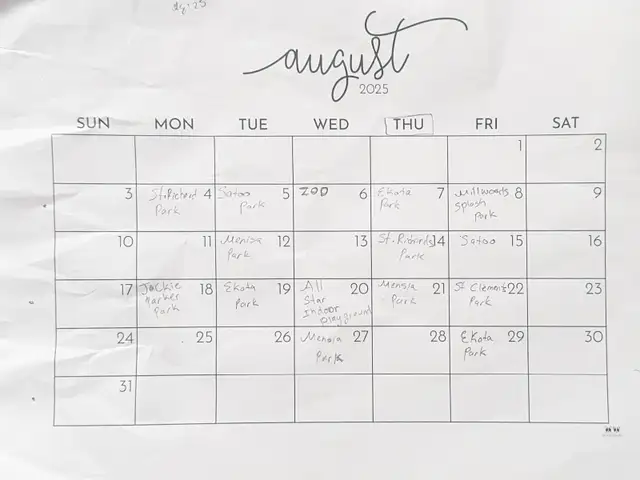 august
2025
SUN MON TUE WED THU FRI SAT
1 2
3 St.Richard 4 Satoo 5 ZOO 6 Ekota 7 Millwoods 8 9
Park Park Park Splash
Park
10 11 Menisa 12 13 St. Richards 14 Satoo 15 16
Park Park
17 Jackie 18 Ekota 19 All 20 Mensia 21 St Clements 22 23
Parker Park Star Park Park
Park Indoor
Playground
24 25 26 Mensia 27 28 Ekota 29 30
Park Park
31